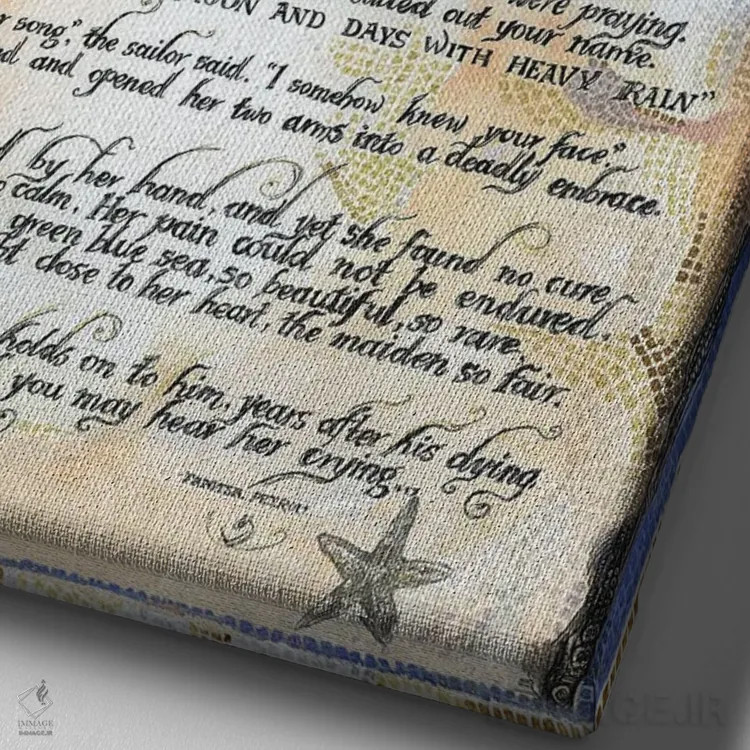 were praying.
called out your name.
AND DAYS WITH HEAVY RAIN”
song,” the sailor said. “I somehow knew your face,”
and opened her two arms into a deadly embrace.
by her hand, and yet she found no cure
calm. Her pain could not be endured.
green blue sea, so beautiful, so rare,
close to her heart, the maiden so fair.
holds on to him, years after his dying
you may hear her crying...
IMMAGE
IMMAGE.IR
GE.IR